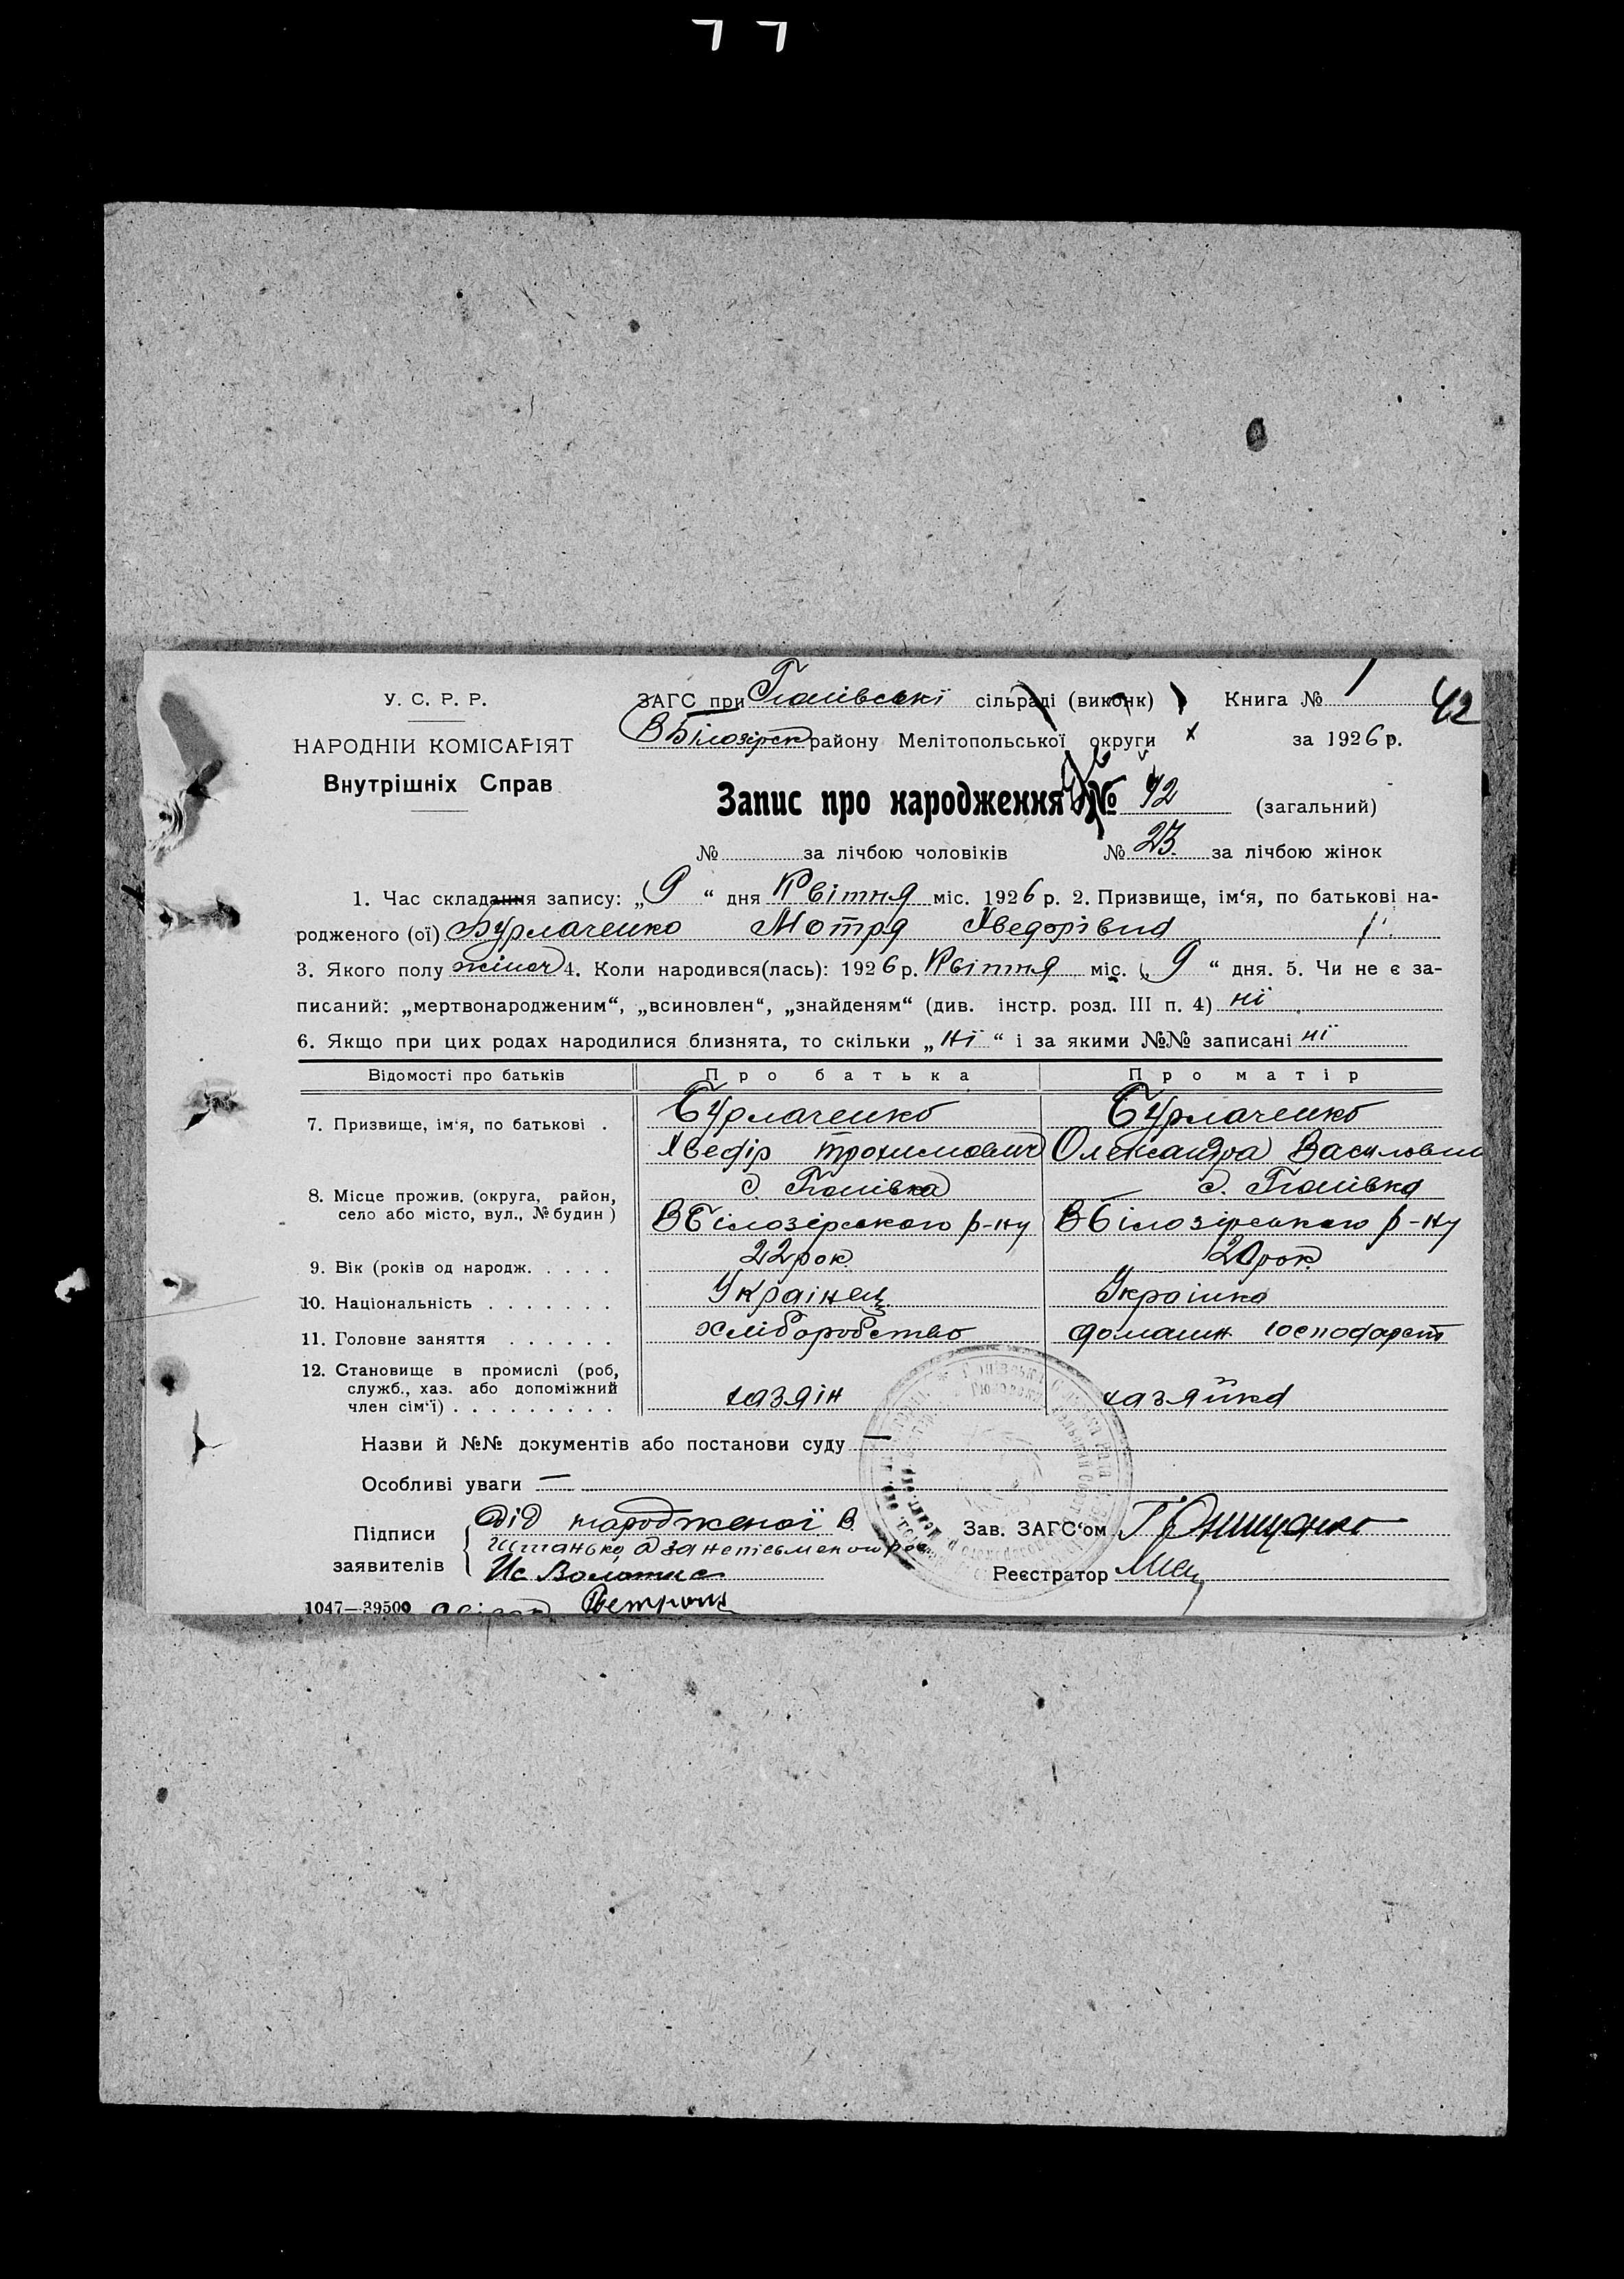 У. С. Р. Р.
НАРОДНІЙ КОМІСАРІЯТ
Внутрішніх Справ
ЗАГС при сільраді (виконк) Книга № 1
42
В Білозірськ району Мелітопольської округи за 1926 р.
Запис про народження № 42 (загальний)
№ за лічбою чоловіків № 23. за лічбою жінок
1. Час складання запису: „9“ дня Квітня міс. 1926 р. 2. Призвище, ім‘я, по батькові на-
родженого (ої) Бурлаченко Мотря Хведорівна
3. Якого полу жіноч 4. Коли народився(лась): 1926 р. Квітня міс. „9“ дня. 5. Чи не є за-
писаний: „мертвонародженим“, „всиновлен“, „знайденям“ (див. інстр. розд. III п. 4) ні
6. Якщо при цих родах народилися близнята, то скільки „ні“ і за якими №№ записані ні
Відомості про батьків Про батька Про матір
7. Призвище, ім‘я, по батькові . Бурлаченко Бурлаченко
Хведір Трохимович Олександра Василовна
8. Місце прожив. (округа, район, с. с.
село або місто, вул., № будин) В Білозірського р-ну В Білозірського р-ну
9. Вік (років од народж. . . . . 22 рок 20 рок
10. Національність . . . . . . . Українец Українка
11. Головне заняття . . . . . . хліборобство домашн господарст
12. Становище в промислі (роб,
служб., хаз. або допоміжний
член сім‘ї) . . . . . . . . . хазяін хазяйка
Назви й №№ документів або постанови суду —
Особливі уваги —
Підписи
заявителів
Дід народженої В.
за неписьменого
Зав. ЗАГС‘ом Г Онищенко
Реєстратор
1047—39500